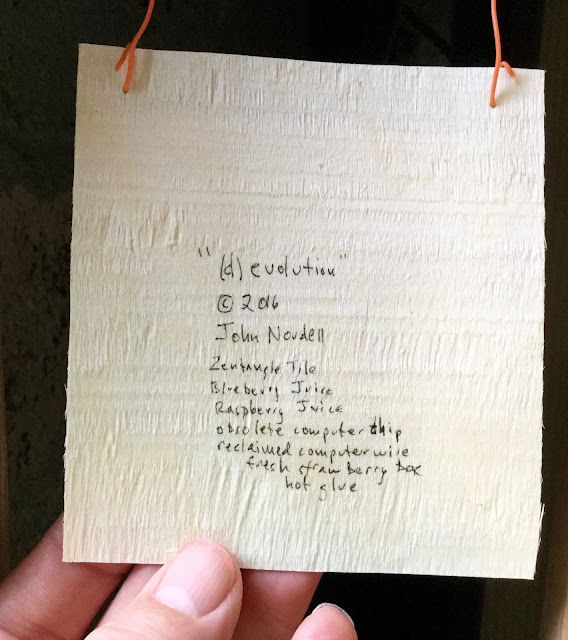 "(d) evolution"
© 2016
John Nordell
Zentangle Tile
Blueberry Juice
Raspberry Juice
obsolete computer chip
reclaimed computer wire
fresh strawberry box
hot glue